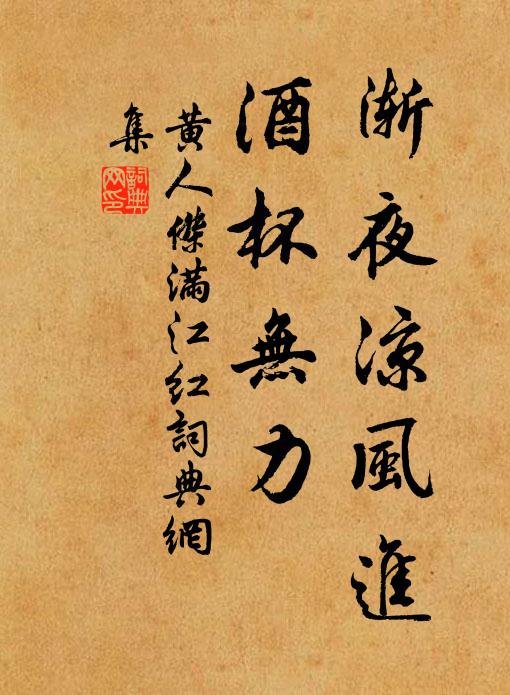 漸夜涼風進
酒杯無力
黄人傑滿江紅詞典網
集
詞典網印